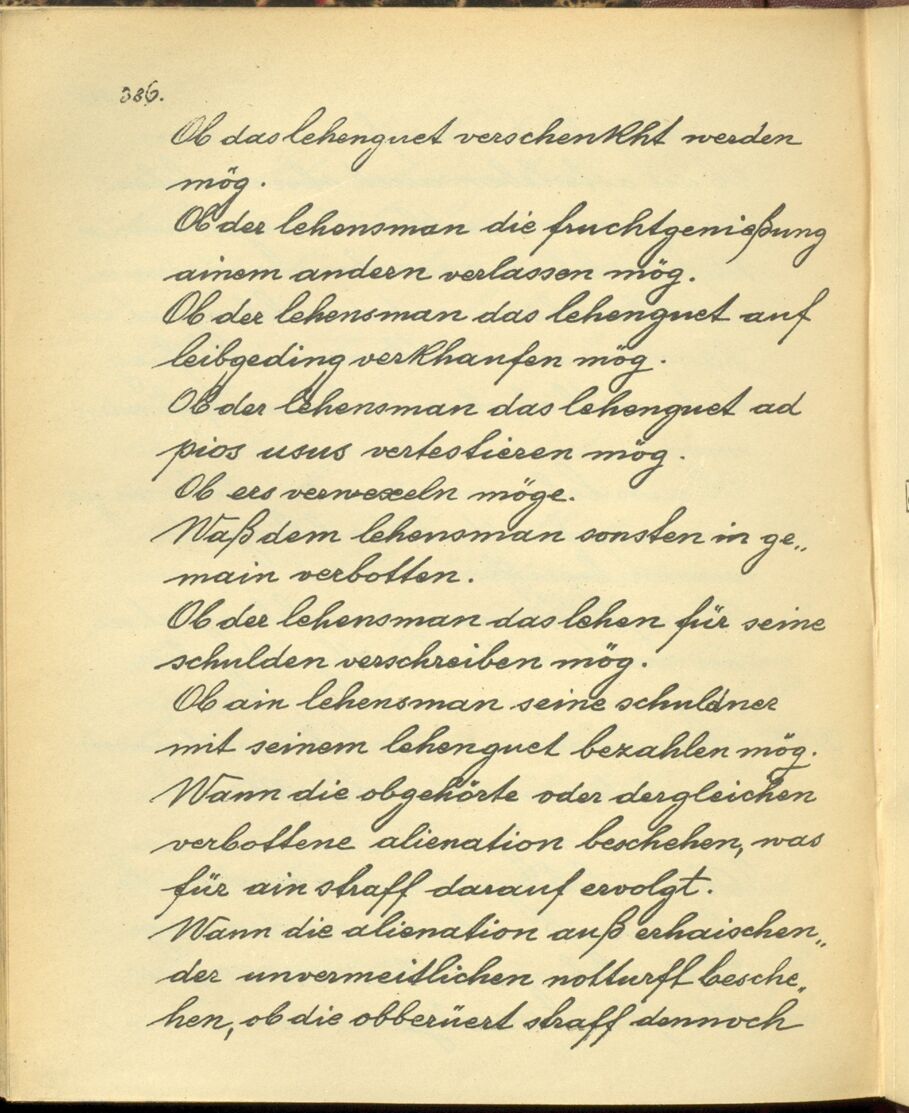 386.
Ob das lehenguet verschenkht werden
mög.
Ob der lehensman die fruchtgenießung
ainem andern verlassen mög.
Ob der lehensman das lehenguet auf
leibgeding verkhaufen mög.
Ob der lehensman das lehenguet ad
pios usus vertestieren mög.
Ob ers verwexeln möge.
Waß dem lehensman sonsten in ge„
main verbotten.
Ob der lehensman das lehen für seine
schulden verschreiben mög.
Ob ain lehensman seine schuldner
mit seinem lehenguet bezahlen mög.
Wann die obgehörte oder dergleichen
verbottene alienation beschehen, was
für ain straff darauf ervolgt.
Wann die alienation auß erhaischen„
der unvermeitlichen notturfft besche„
hen, ob die obberüert straff dennoch